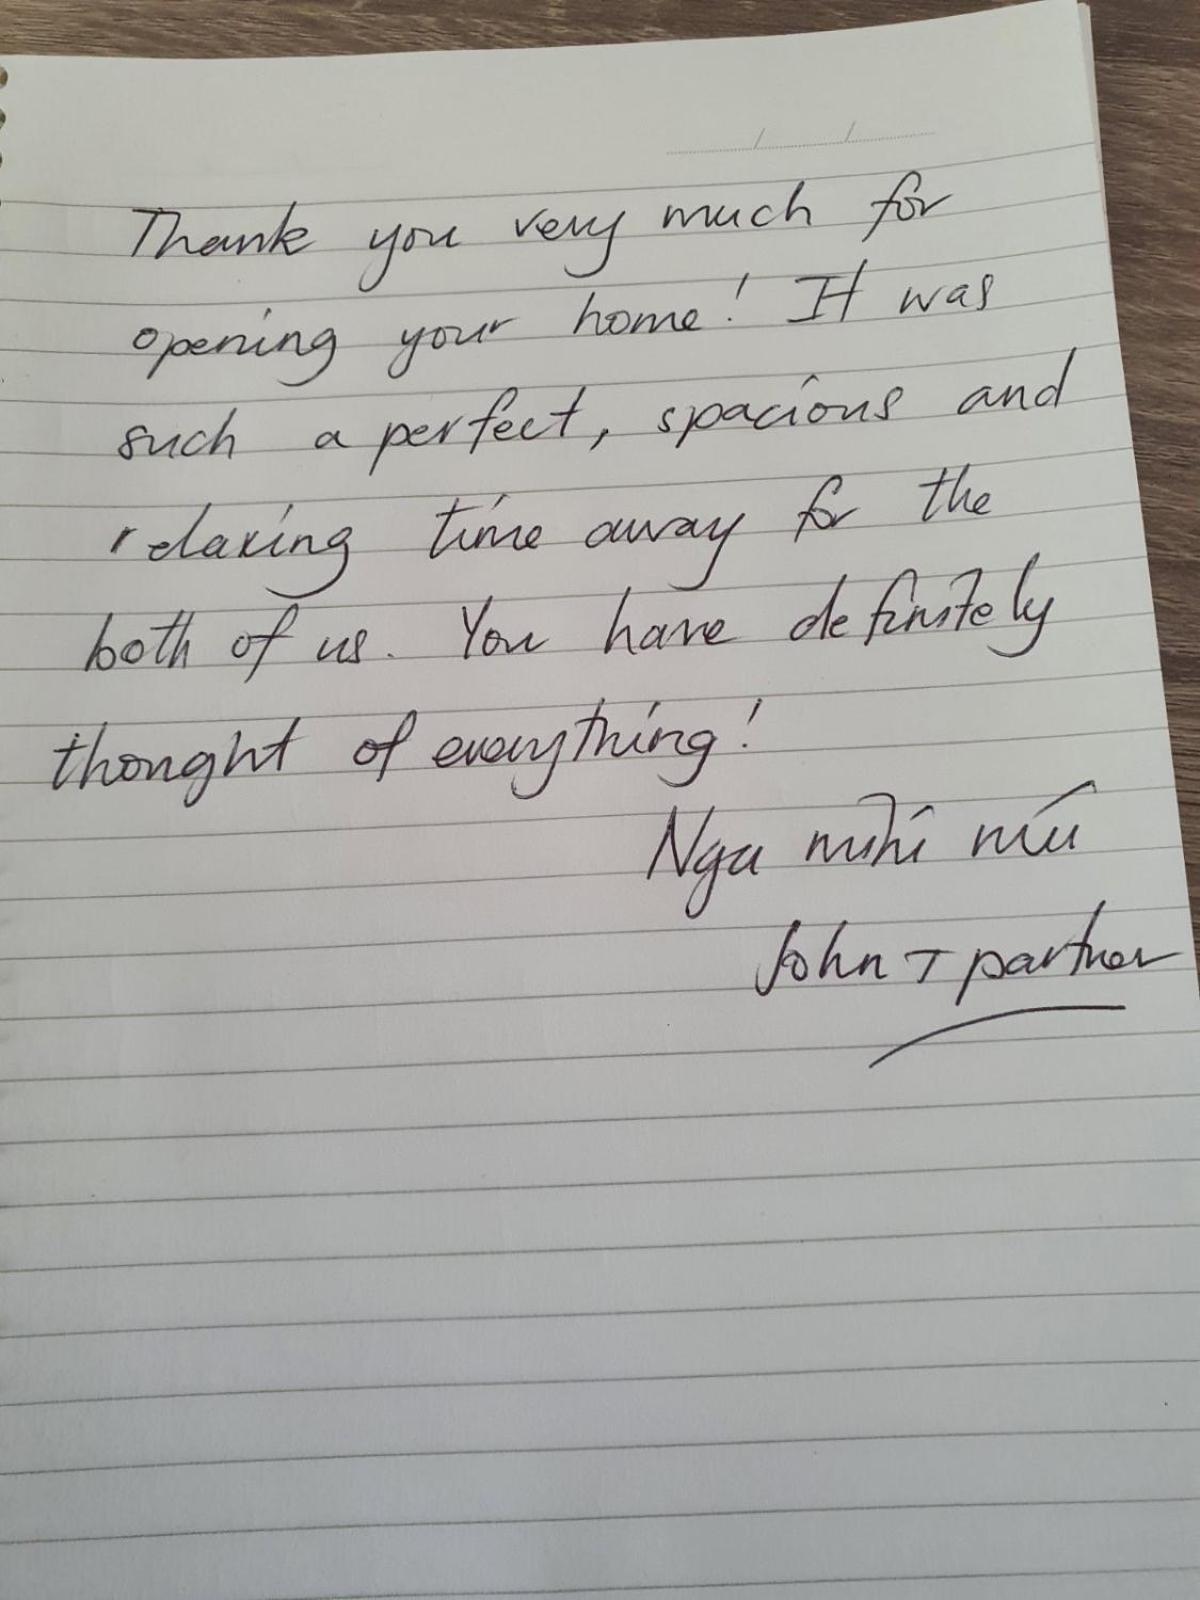 Thank you very much for
opening your home! It was
such a perfect, spacious and
relaxing time away for the
both of us. You have definitely
thought of everything!
Nga mihi nui
John + partner